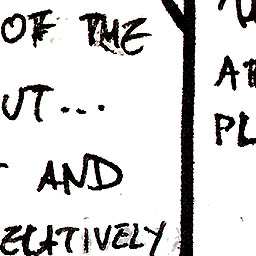 OF THE
UT...
AND
ELATIVELY
PL